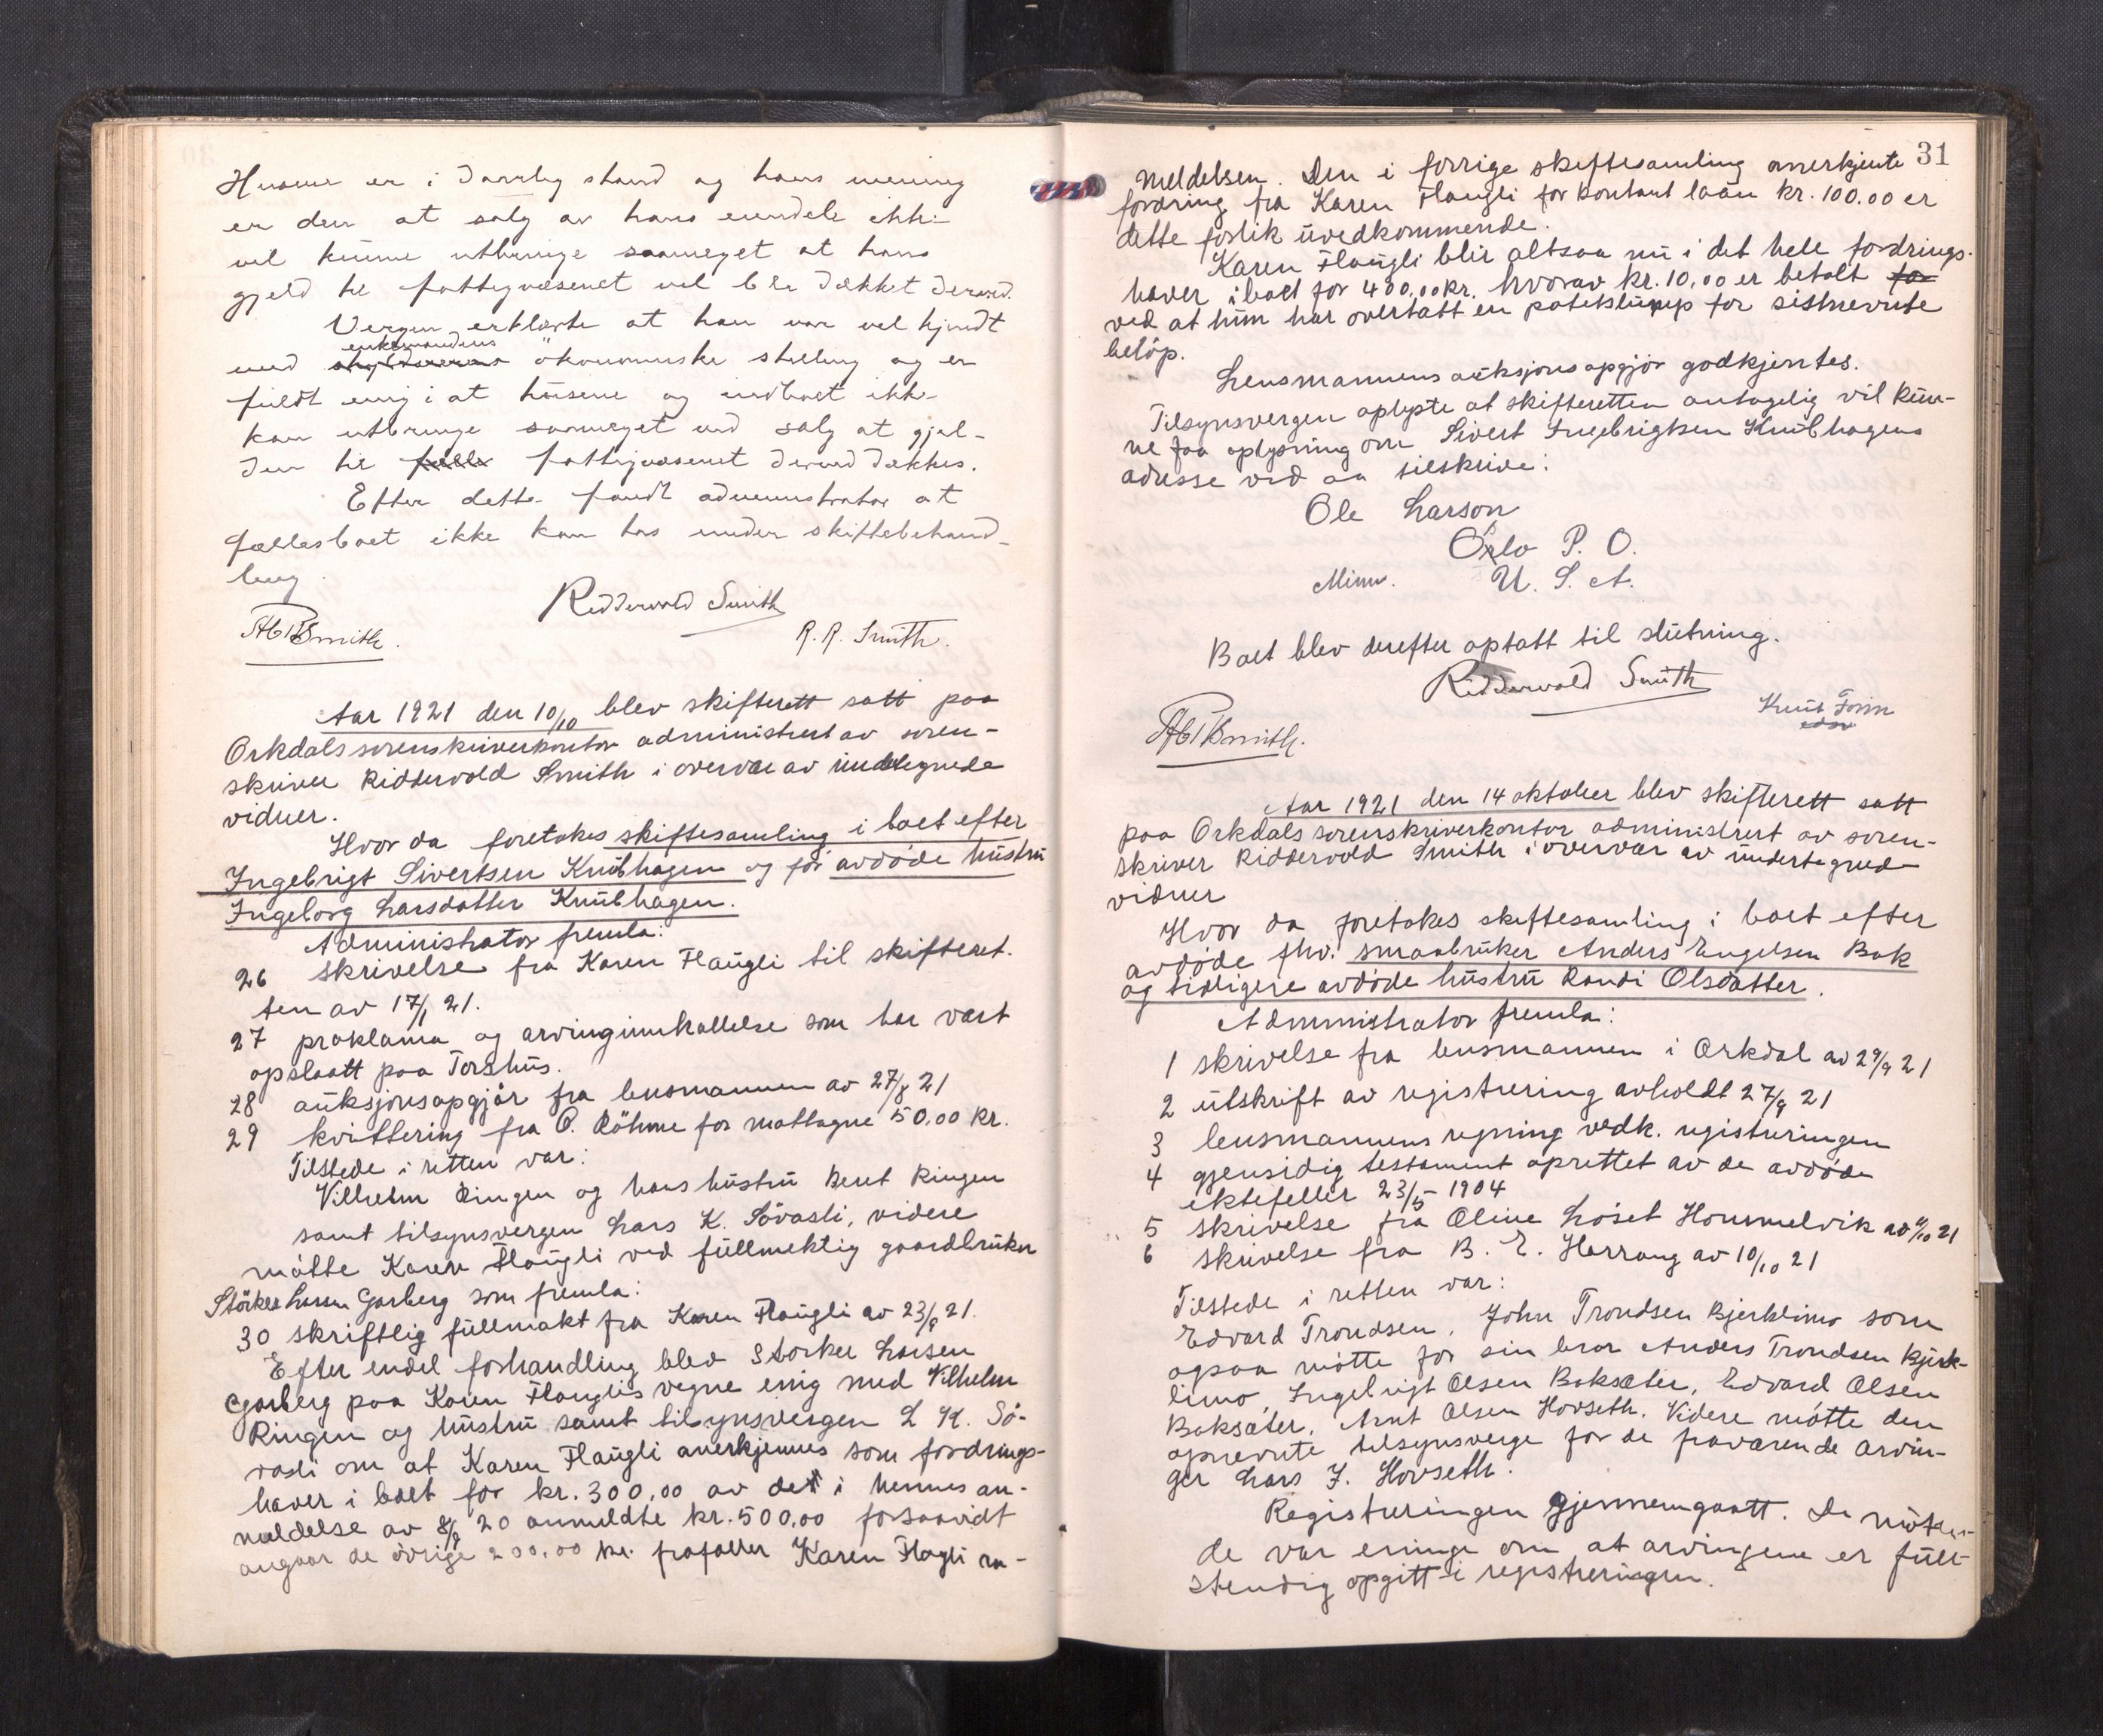 Husene er i daarlig stand og hans mening
er den at salg av hans eiendele ikke
vil kunne utbringe saameget at hans
gjeld til fattigvæsenet vil bli dækket derved.
Vergen erklærte at han var vel kjendt
enkemandens
med økonomiske stilling og er
fuldt enig i at husene og indboet ikke
kan utbringe saameget ved salg at gjel-
den til fælle fattigvæsenet derved dækkes.
Efter dette fandt administrator at
fællesboet ikke kan tas under skiftebehand-
ling.
Riddervold Smith
Smith.
R. R. Smith.
Aar 1921 den 10/10 blev skifterett satt paa
Orkdals sorenskriverkontor administrert av soren-
skriver Riddervold Smith i overvær av undertegnede
vidner.
Hvor da foretokes skiftesamling i boet efter
Ingebrigt Sivertsen Knubhagen og før avdøde hustru
Ingeborg Larsdatter Knubhagen.
Administrator fremla:
26 skrivelse fra Karen Flaugli til skifteret-
ten av 17/1 21.
27 proklama og arvinginnkallelse som har vært
opslaatt paa Torshus.
28 auksjonsopgjør fra lensmannen av 27/8 21
29 kvittering fra O. Röhme for mottagne 50,00 kr.
Tilstede i retten var:
Vilhelm Ringen og hans hustru Beret Ringen
samt tilsynsvergen Lars K. Sövasli, videre
møtte Karen Flaugli ved fullmektig gaardbruker
Störker Larsen Garberg som fremla:
30 skriftlig fullmakt fra Karen Flaugli av 23/9 21.
Efter endel forhandling blev Storker Larsen
Garberg paa Karen Flauglis vegne enig med Vilhelm
Ringen og hustru samt tilsynsvergen L K. Sö-
vasli om at Karen Flaugli anerkjennes som fordrings-
haver i boet for kr. 300,00 av det i hennes an-
meldelse av 8/9 20 anmeldte kr. 500,00 forsaavidt
angaar de övrige 200,00 kr. frafaller Karen Flagli an-
31
meldelsen. Den i forrige skiftesamling anerkjente
fordring fra Karen Flaugli for kontant laan kr. 100.00 er
dette forlik uvedkommende.
Karen Flaugli blir altsaa nu i det hele fordrings-
haver i boet for 400,00 kr. hvorav kr. 10,00 er betalt for
ved at hun har overtatt en potetslump for sistnevnte
beløp.
Lensmannens auksjonsopgjør godkjentes.
Tilsynsvergen oplyste at skifteretten antagelig vil kun-
ne faa oplysning om Sivert Ingebrigtsen Knubhagens
adresse ved aa tilskrive:
Ole Larson
Oslo P. O.
Minn. U. S. A.
Boet blev derefter optatt til slutning.
Riddervold Smith
Smith.
Knut Foim
Aar 1921 den 14 oktober blev skifterett satt
paa Orkdals sorenskriverkontor administrert av soren-
skriver Riddervold Smith i overvær av undertegned
vidner
Hvor da foretokes skiftesamling i boet efter
avdøde fhv. smaabruker Anders Engelsen Bak
og tidligere avdøde hustru Randi Olsdatter.
Administrator fremla:
1 skrivelse fra lensmannen i Orkdal av 29/9 21
2 utskrift av registrering avholdt 27/9 21
3 lensmannens regning vedk. registreringen
4 gjensidig testament oprettet av de avdøde
ektefeller 23/5 1904
5 skrivelse fra Oline Løset Hommelvik av 9/10 21
6 skrivelse fra B. E. Harrang av 10/10 21
Tilstede i retten var:
Edvard Trondsen, John Trondsen Bjerklimo som
ogsaa møtte for sin bror Anders Trondsen Bjerk-
limo, Ingebrigt Olsen Baksæter, Edvard Olsen
Baksæter, Arnt Olsen Hovseth. Videre møtte den
opnevnte tilsynsverge for de fraværende arvin-
ger Lars J. Hovseth.
Registreringen gjennemgaatt. De møten-
de var enige om at arvingene er full-
stendig opgitt i registreringen.